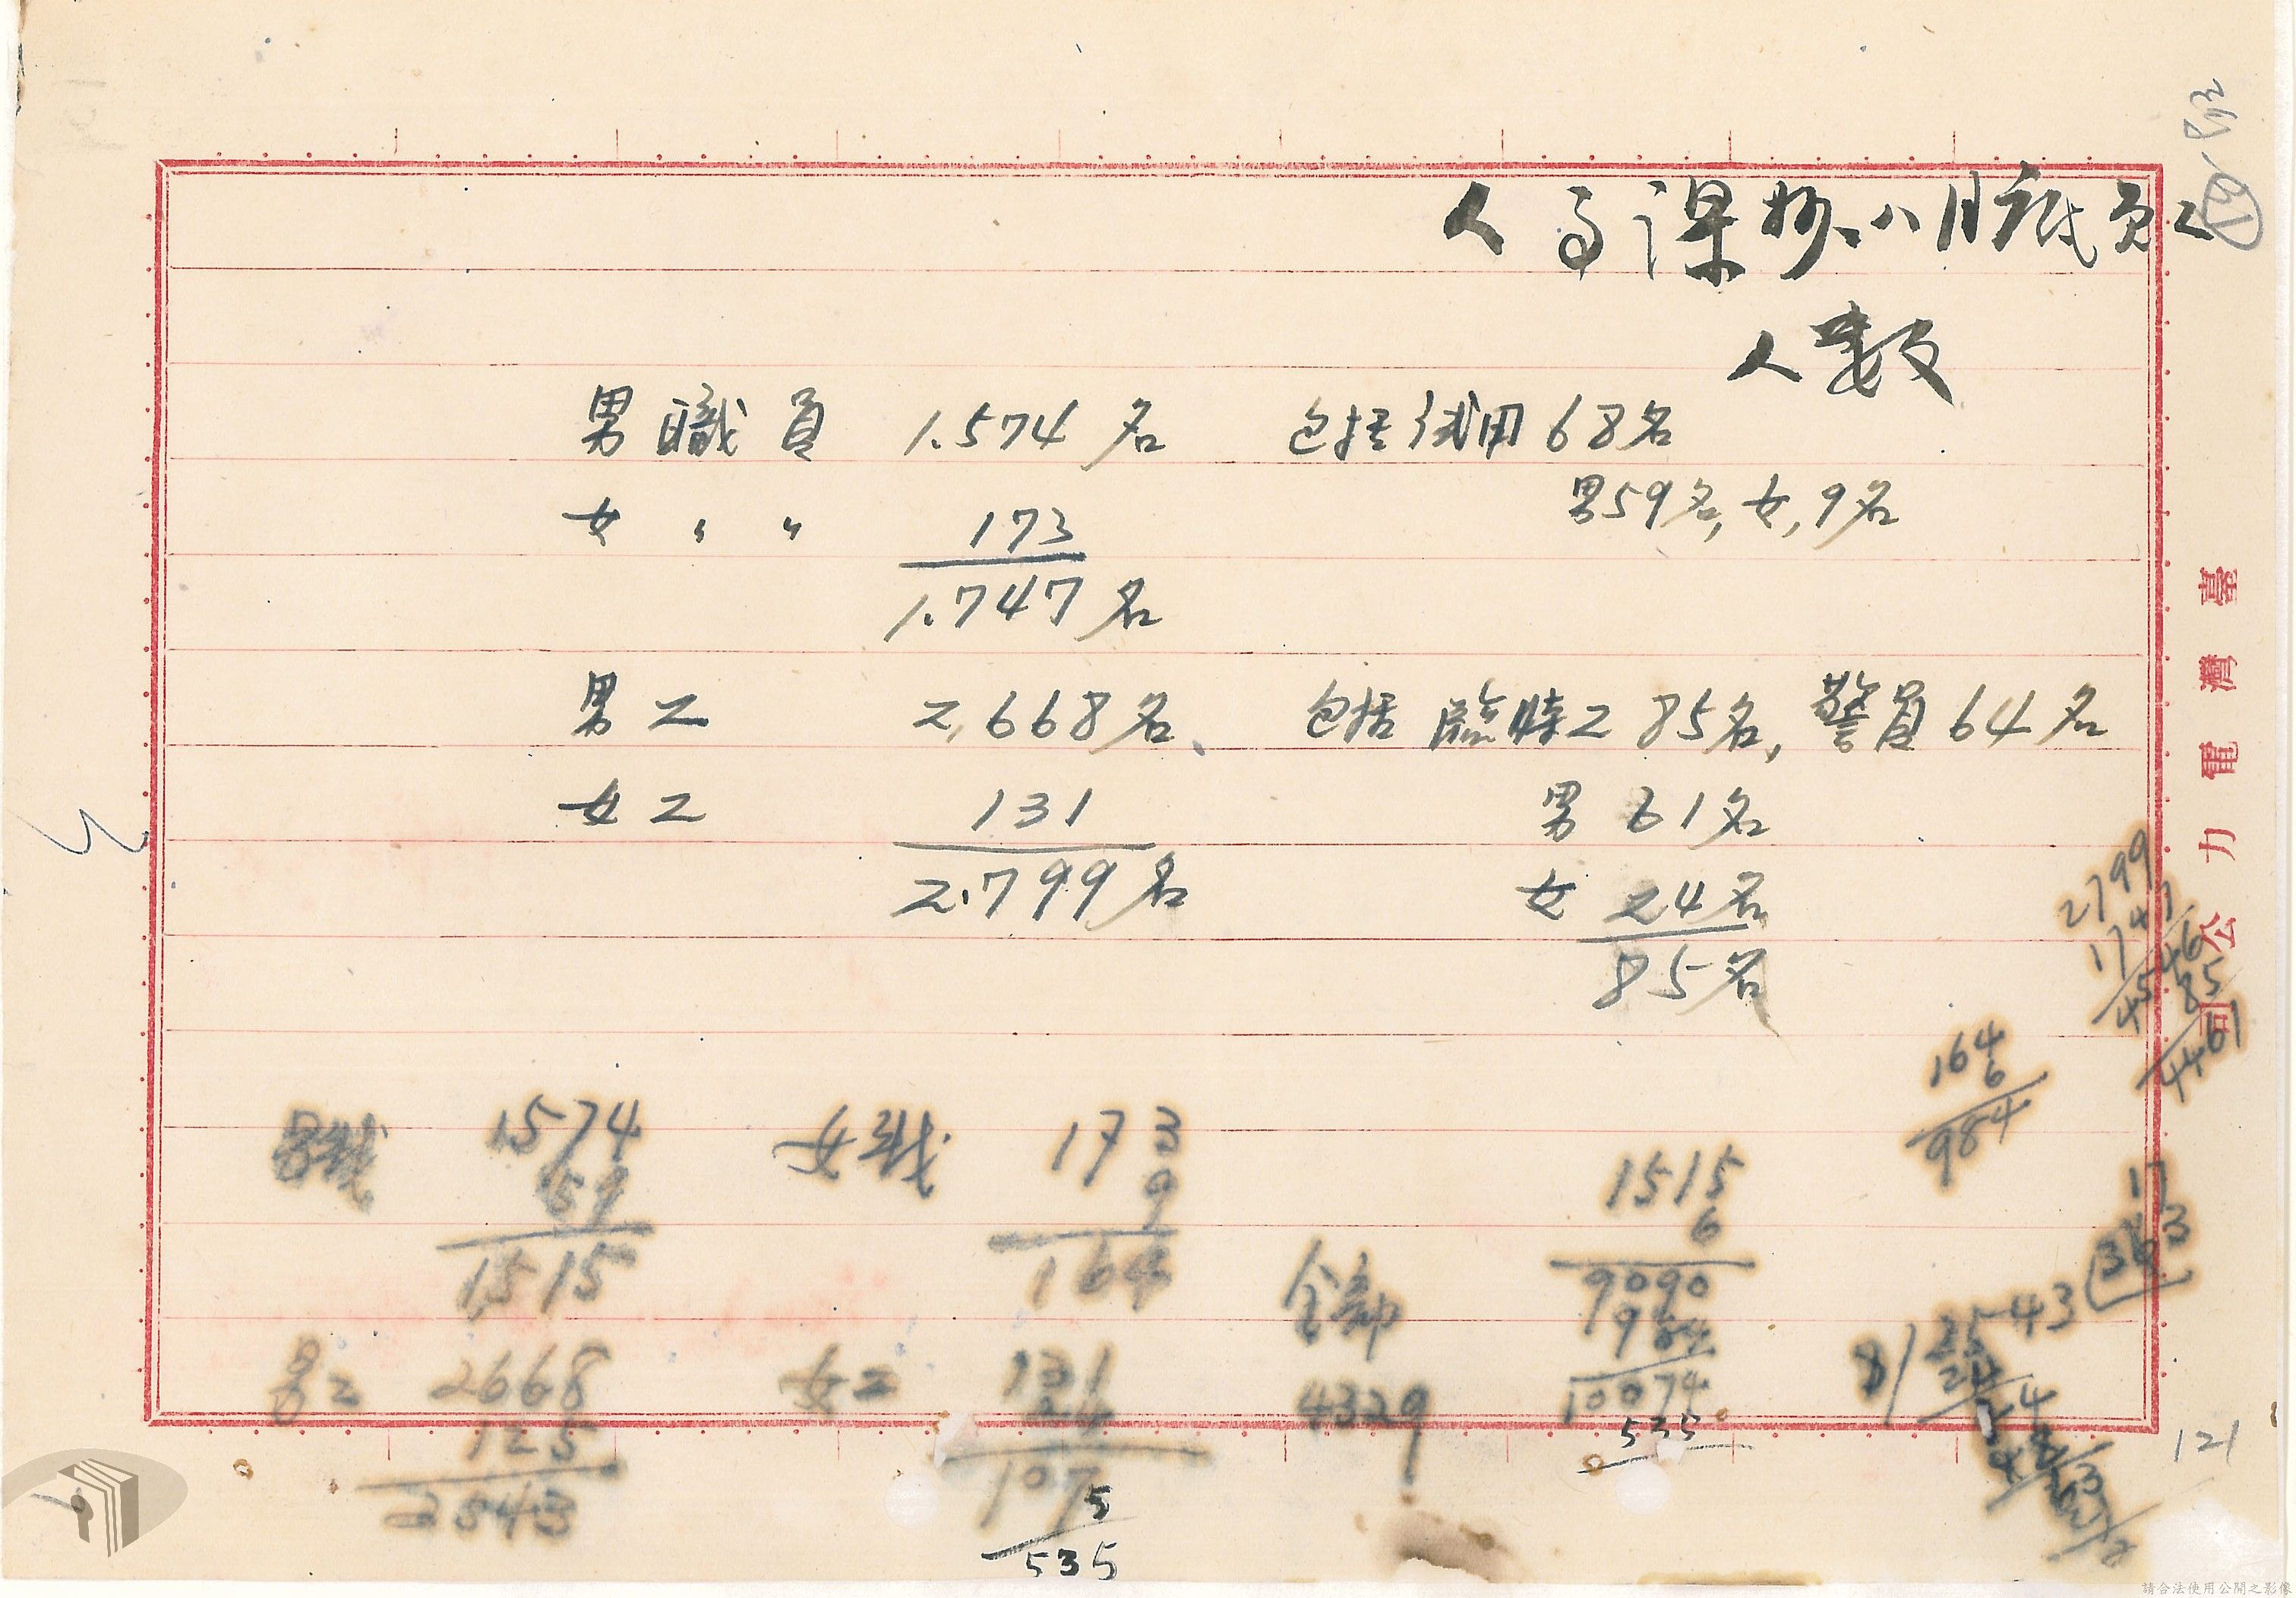 人事課抄八月職員工
人數
男職員 1.574名 包括試用68名
女 〃 〃 173 男59名,女,9名
1.747名
男工 2,668名、 包括臨時工85名,警員64名
女工 131 男 61名
2.799名 女 24名
85名
臺灣電力公司
2799
1747
4546
85
4461
164
6
984
男職 1574 女職 173
59 9
1515 164
男工 2668 女工 131
125 24
2543 107
5
535
全部
4329
1515
6
9090
984
10074
535
8 2543
24
14
121
請合法使用公開之影像